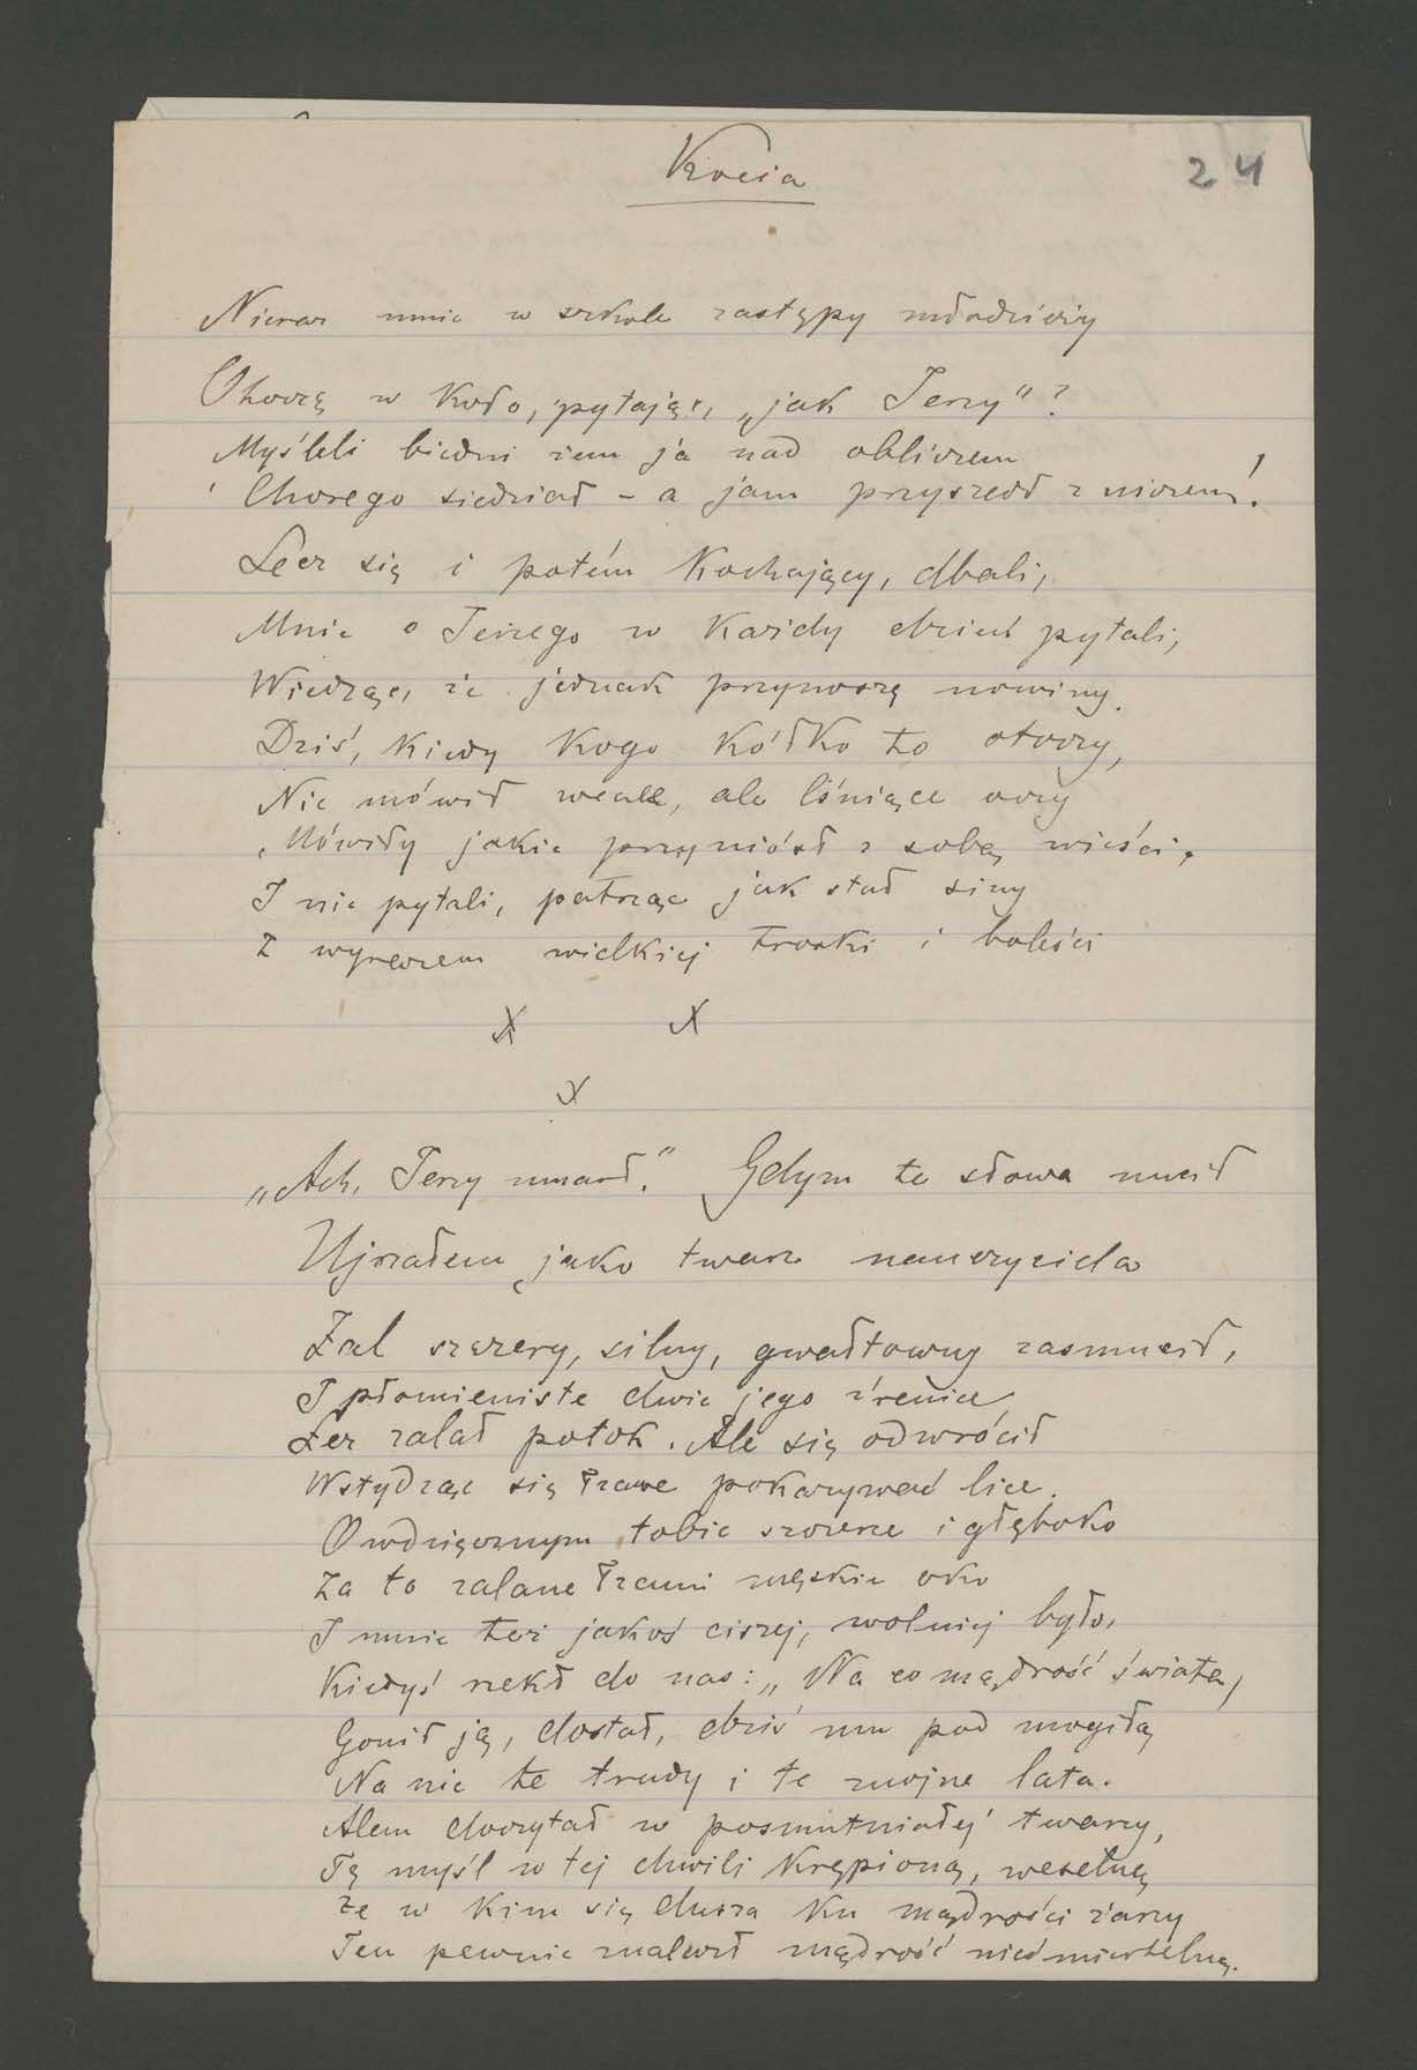 Kocia
24
Nieraz mnie w szkole zastępy młodzieży
Otoczą w koło, pytając, „jak Jerzy"?
Myśleli biedni żem ja nad obliczem
Chorego siedział - a jam przyszedł z niczem!
Lecz się i potém kochający, dbali,
Mnie o Jerzego w każdy dzień pytali,
Wiedząc, że jednak przynoszę nowiny.
Dziś, kiedy kogo kółko to otoczy,
Nie mówił wcale, ale lśniące oczy
Mówiły jakie przyniósł z sobą wieści,
I nie pytali, patrząc jak stał siny
Z wyrazem wielkiej troski i boleści
X X
X
„Ach, Jerzy umarł." Gdym te słowa rzucił
Ujrzałem, jako twarz nauczyciela
Żal szczery, silny, gwałtowny zasmucił,
I płomieniste dwie jego źrenice
Łez zalał potok. Ale się odwrócił
Wstydząc się łzawe pokazywać lice.
O wdzięcznym tobie szczerze i głęboko
Za to zalane łzami męskie oko
I mnie też jakoś ciszej, wolniej było,
Kiedyś rzekł do nas: „Na co mądrość świata,
Gonił ją, dostał, dziś mu pod mogiłą
Na nic te trudy i te znojne lata.
Alem doczytał w posmutniałéj twarzy,
Tę myśl w tej chwili krępioną, weselną
Że w kim się dusza ku mądrości żarzy
Ten pewnie znalazł mądrość nieśmiertelną.